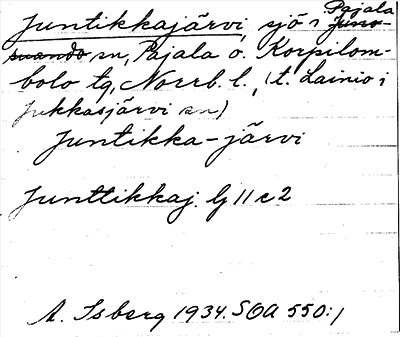 Juntikkajärvi, sjö i Pajala Juno-
suando sn, Pajala o. Korpilom-
bolo tg, Norrb. l., (t. Lainio i
Jukkasjärvi sn)
Juntikka-järvi
Junttikkaj. bj 11 c 2
A. Isberg 1934. SOA 550:1